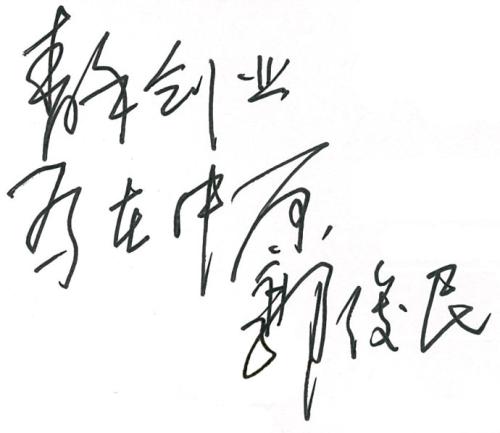 青年创业
赢在中原
郭俊民